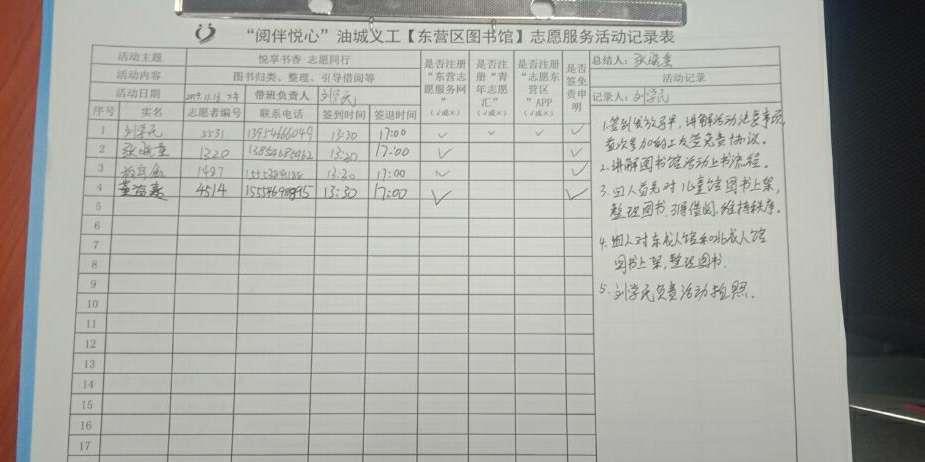 “阅伴悦心”油城义工【东营区图书馆】志愿服务活动记录表
活动主题 悦享书香 志愿同行 是否注册“东营志愿服务网”(√或×) 是否注册“青年志愿汇”(√或×) 是否注册“志愿东营区”APP(√或×) 是否签免责申明 总结人：
活动内容 图书归类、整理、引导借阅等 活动记录
活动日期 带班负责人 刘学民 记录人：刘学民
序号 实名 志愿者编号 联系电话 签到时间 签退时间
1 刘学民 5531 13954666049 13:30 17:00 ✓ ✓ ✓ ✓
2 1320 13:30 17:00 ✓ ✓
3 1487 13:30 17:00 ✓ ✓
4 4514 13:30 17:00 ✓ ✓
5
6
7
8
9
10
11
12
13
14
15
16
17
1.签到发放马甲，讲解活动注意事项
首次参加的义工签免责协议。
2.讲解图书馆活动上书流程。
3.四人首先对儿童馆图书上架，
整理图书，引导借阅，维持秩序。
4.四人对东成人馆和北成人馆
图书上架，整理图书.
5.刘学民负责活动拍照.